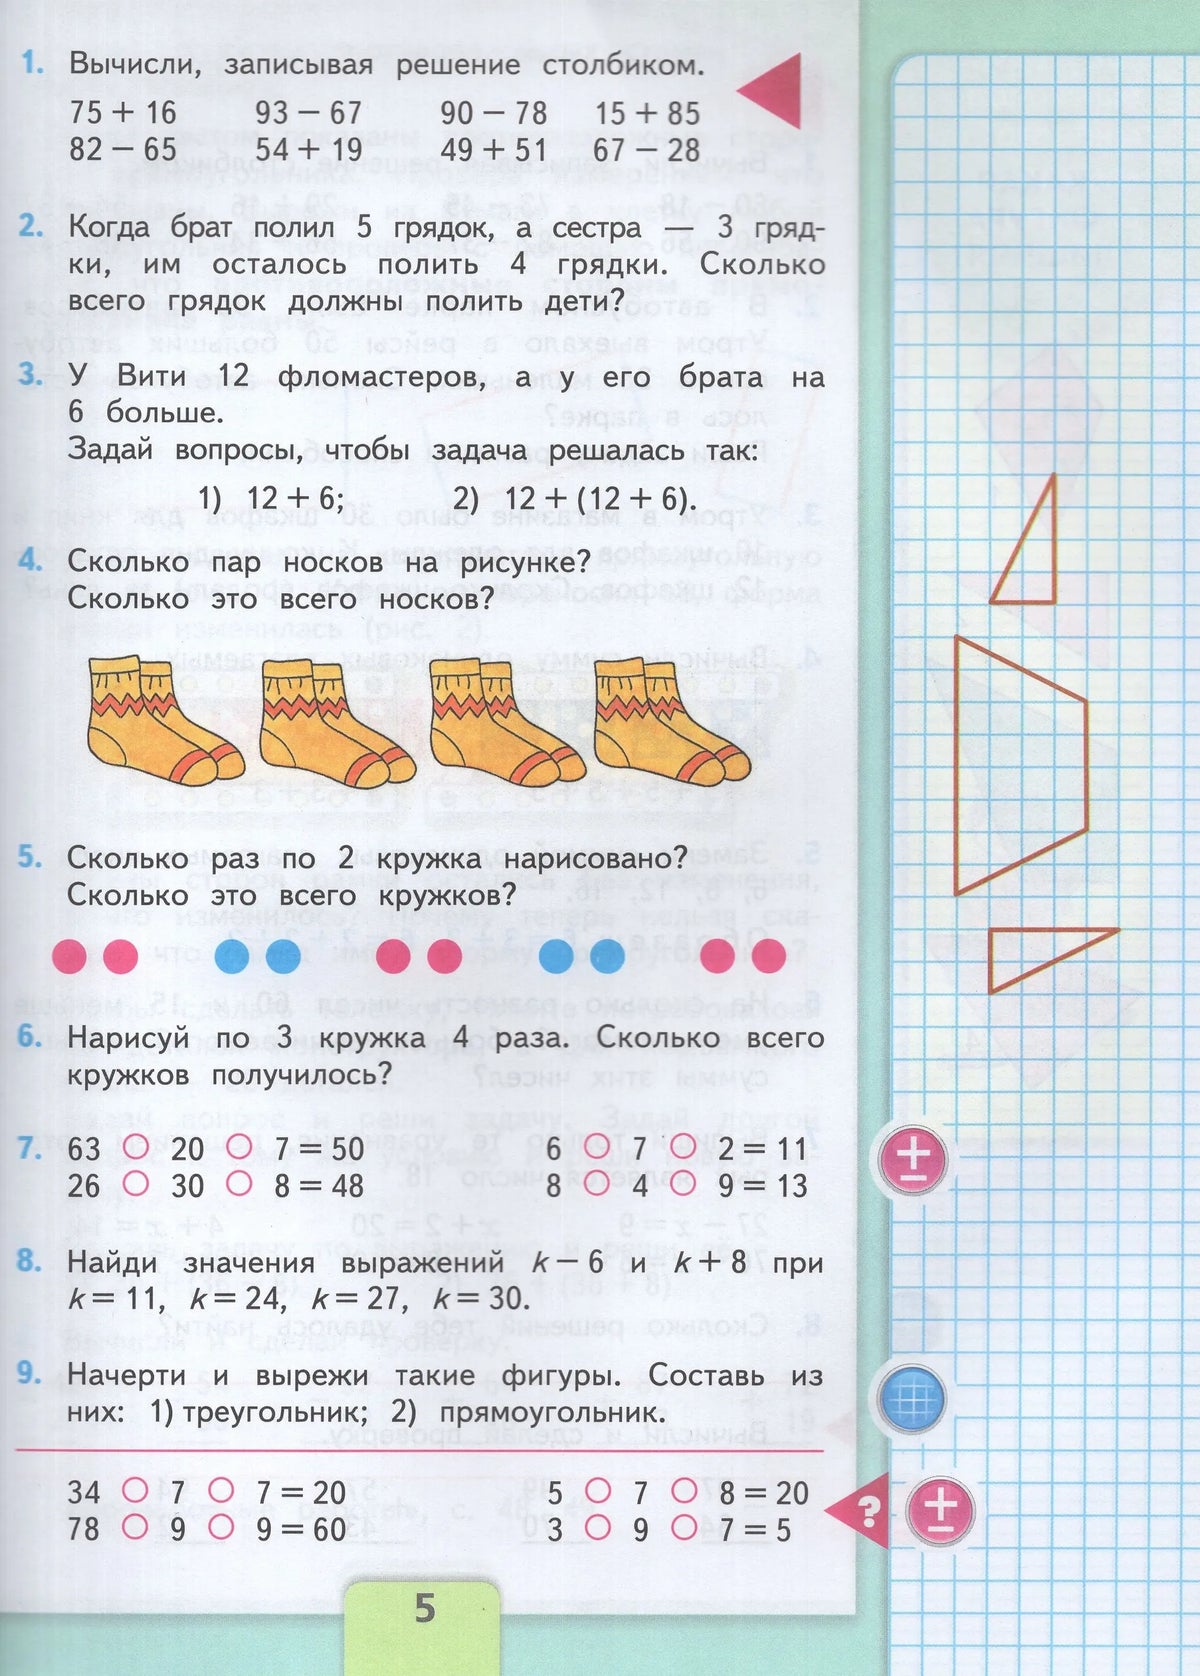 1. Вычисли, записывая решение столбиком.
75 + 16 93 − 67 90 − 78 15 + 85
82 − 65 54 + 19 49 + 51 67 − 28
2. Когда брат полил 5 грядок, а сестра — 3 гряд-
ки, им осталось полить 4 грядки. Сколько
всего грядок должны полить дети?
3. У Вити 12 фломастеров, а у его брата на
6 больше.
Задай вопросы, чтобы задача решалась так:
1) 12 + 6; 2) 12 + (12 + 6).
4. Сколько пар носков на рисунке?
Сколько это всего носков?
5. Сколько раз по 2 кружка нарисовано?
Сколько это всего кружков?
6. Нарисуй по 3 кружка 4 раза. Сколько всего
кружков получилось?
7. 63 ○ 20 ○ 7 = 50 6 ○ 7 ○ 2 = 11
26 ○ 30 ○ 8 = 48 8 ○ 4 ○ 9 = 13
8. Найди значения выражений k − 6 и k + 8 при
k = 11, k = 24, k = 27, k = 30.
9. Начерти и вырежи такие фигуры. Составь из
них: 1) треугольник; 2) прямоугольник.
34 ○ 7 ○ 7 = 20 5 ○ 7 ○ 8 = 20
78 ○ 9 ○ 9 = 60 3 ○ 9 ○ 7 = 5
?
5